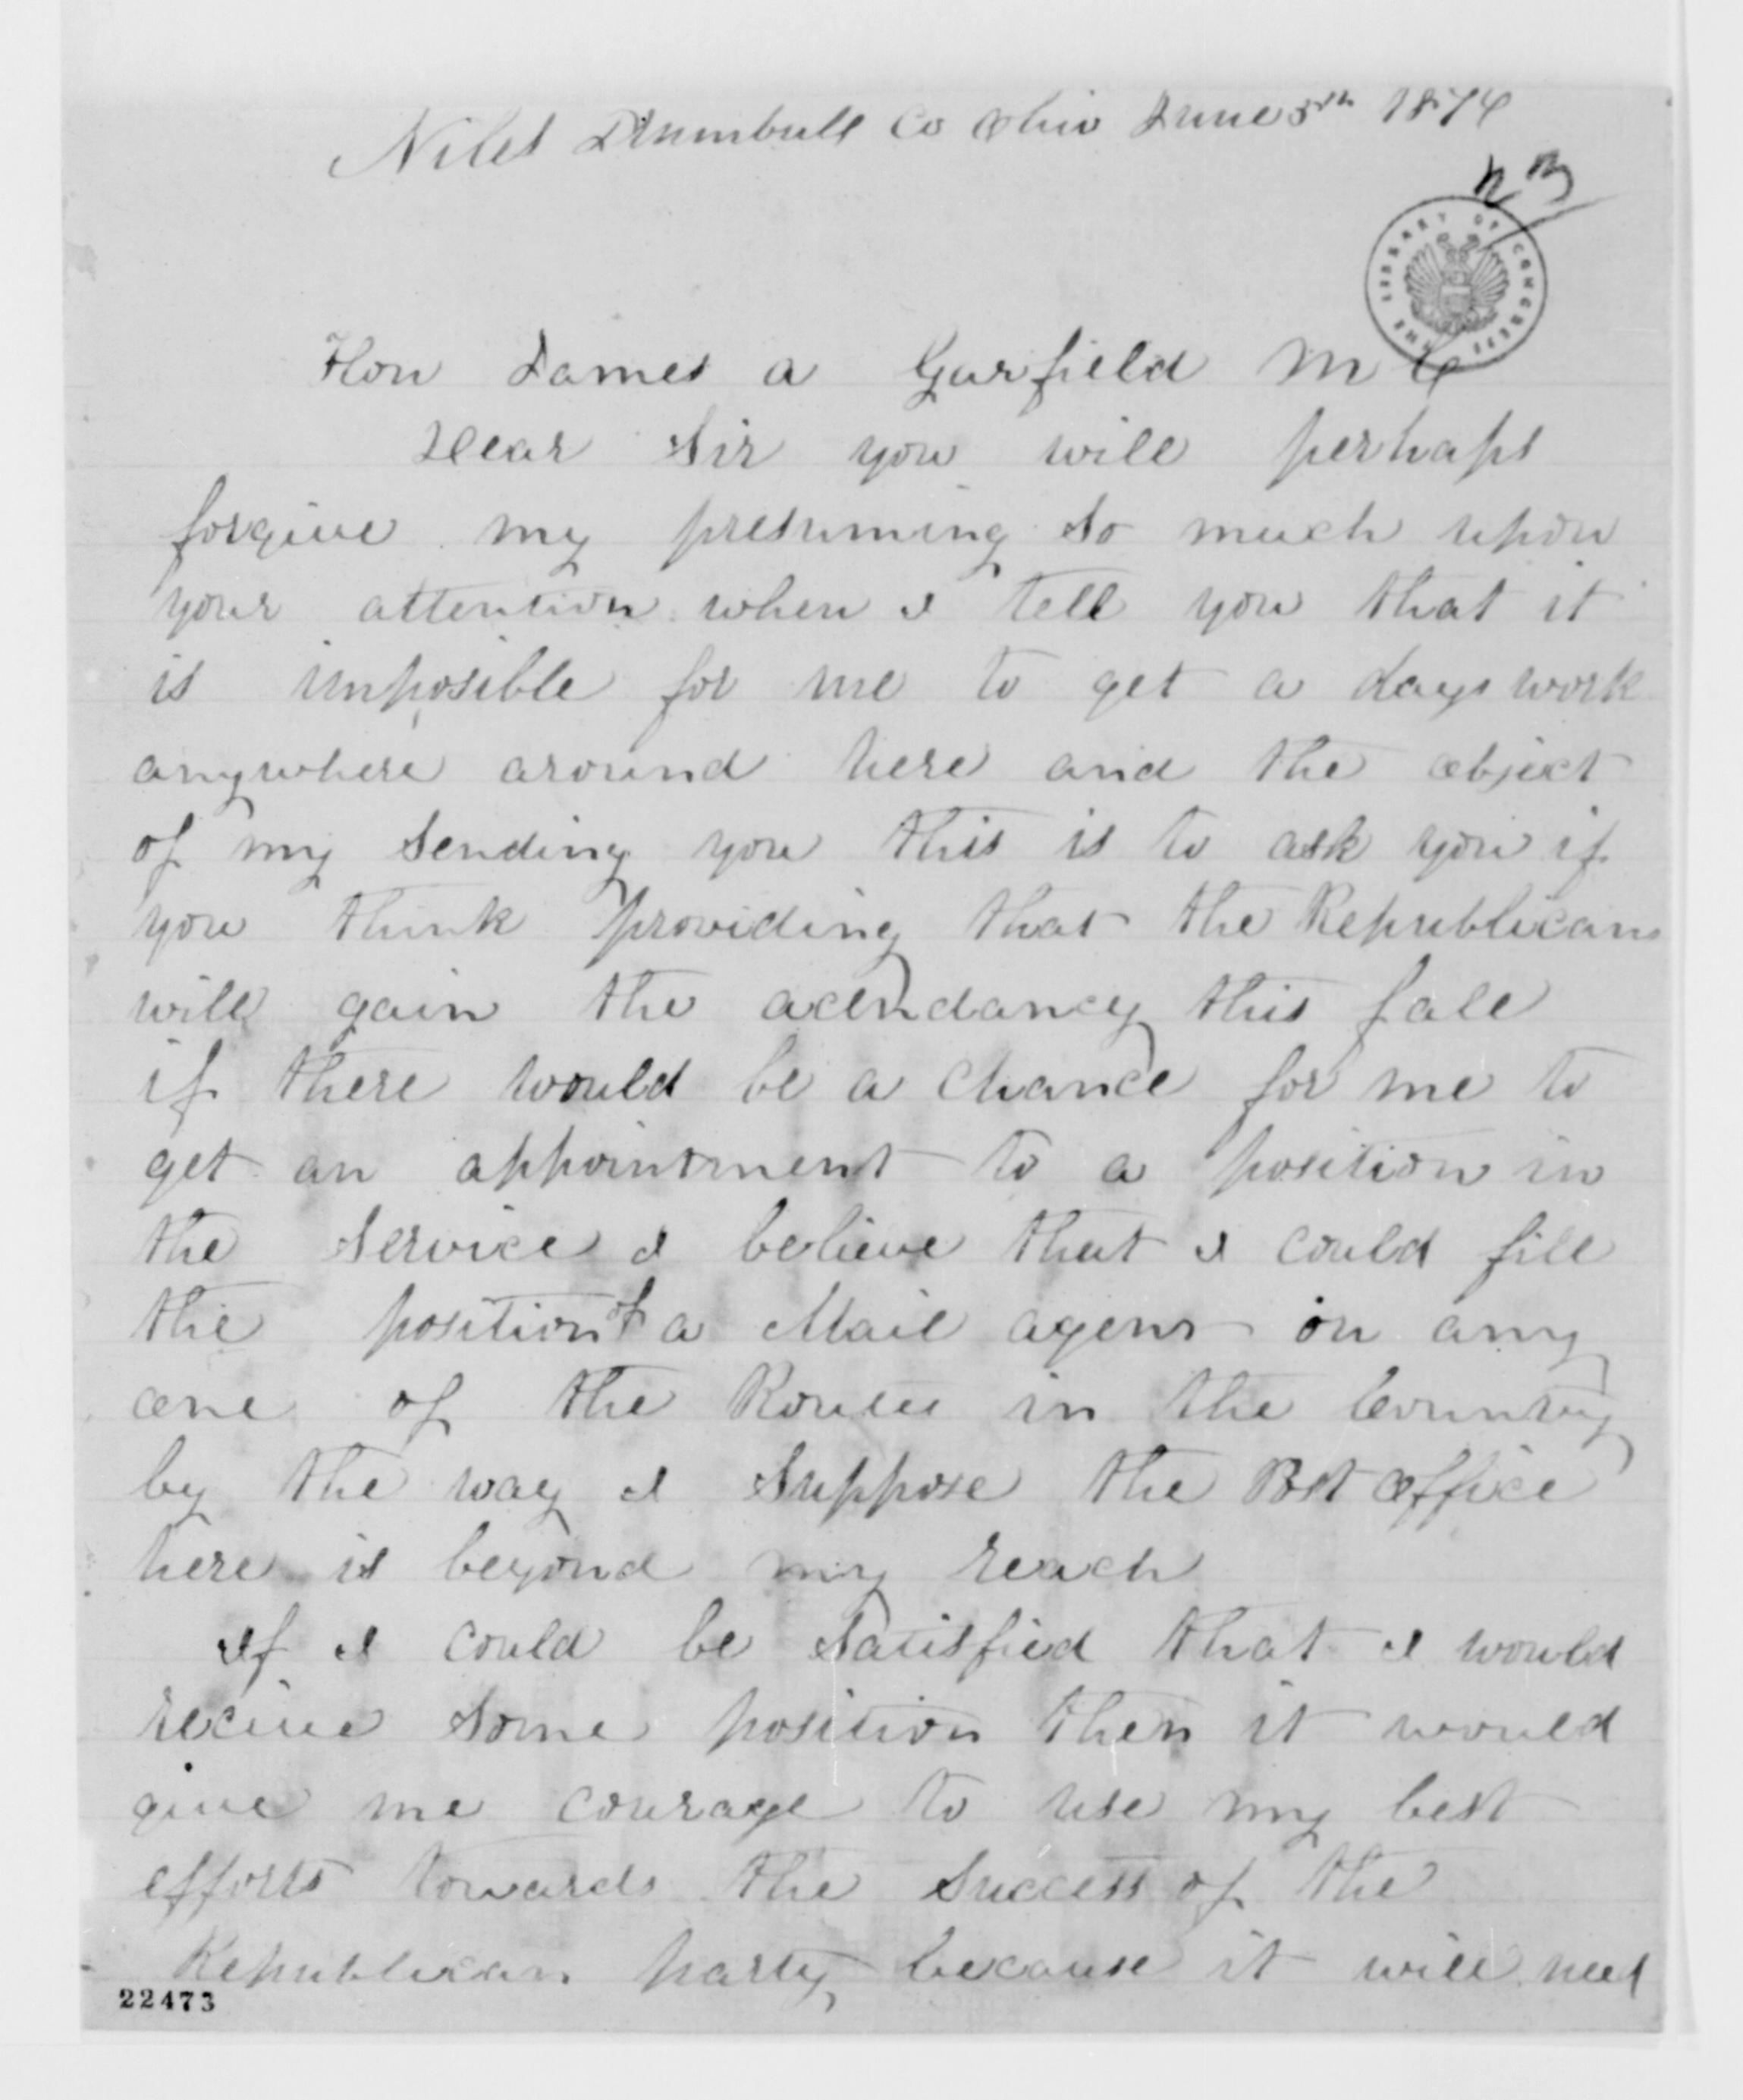 Niles Trumbull Co Ohio June 5th 1874
23
THE LIBRARY OF CONGRESS
Hon James a Garfield M C
Dear Sir you will perhaps
forgive my presuming so much upon
your attention when I tell you that it
is imposible for me to get a days work
anywhere around here and the object
of my sending you this is to ask you if
you think providing that the Republicans
will gain the acendancy this fall
if there would be a chance for me to
get an appointment to a position in
the service I believe that I could fill
the position of a Mail agent on any
one of the Routes in the Country
by the way I suppose the Post office
here is beyond my reach
If I could be satisfied that I would
recieve some position then it would
give me courage to use my best
efforts towards the success of the
Republican party because it will need
22473